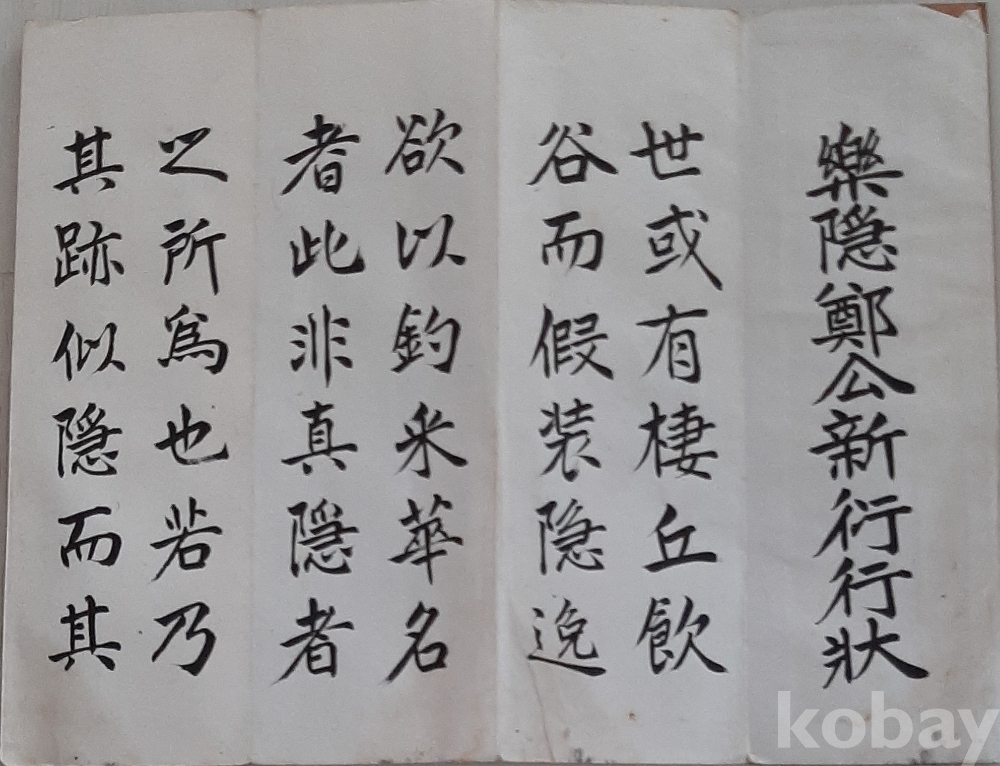 樂隐鄭公新衍行狀
世或有棲丘飲
谷而假装隐逸
欲以釣采華名
者此非真隱者
之所爲也若乃
其跡似隱而其
kobay